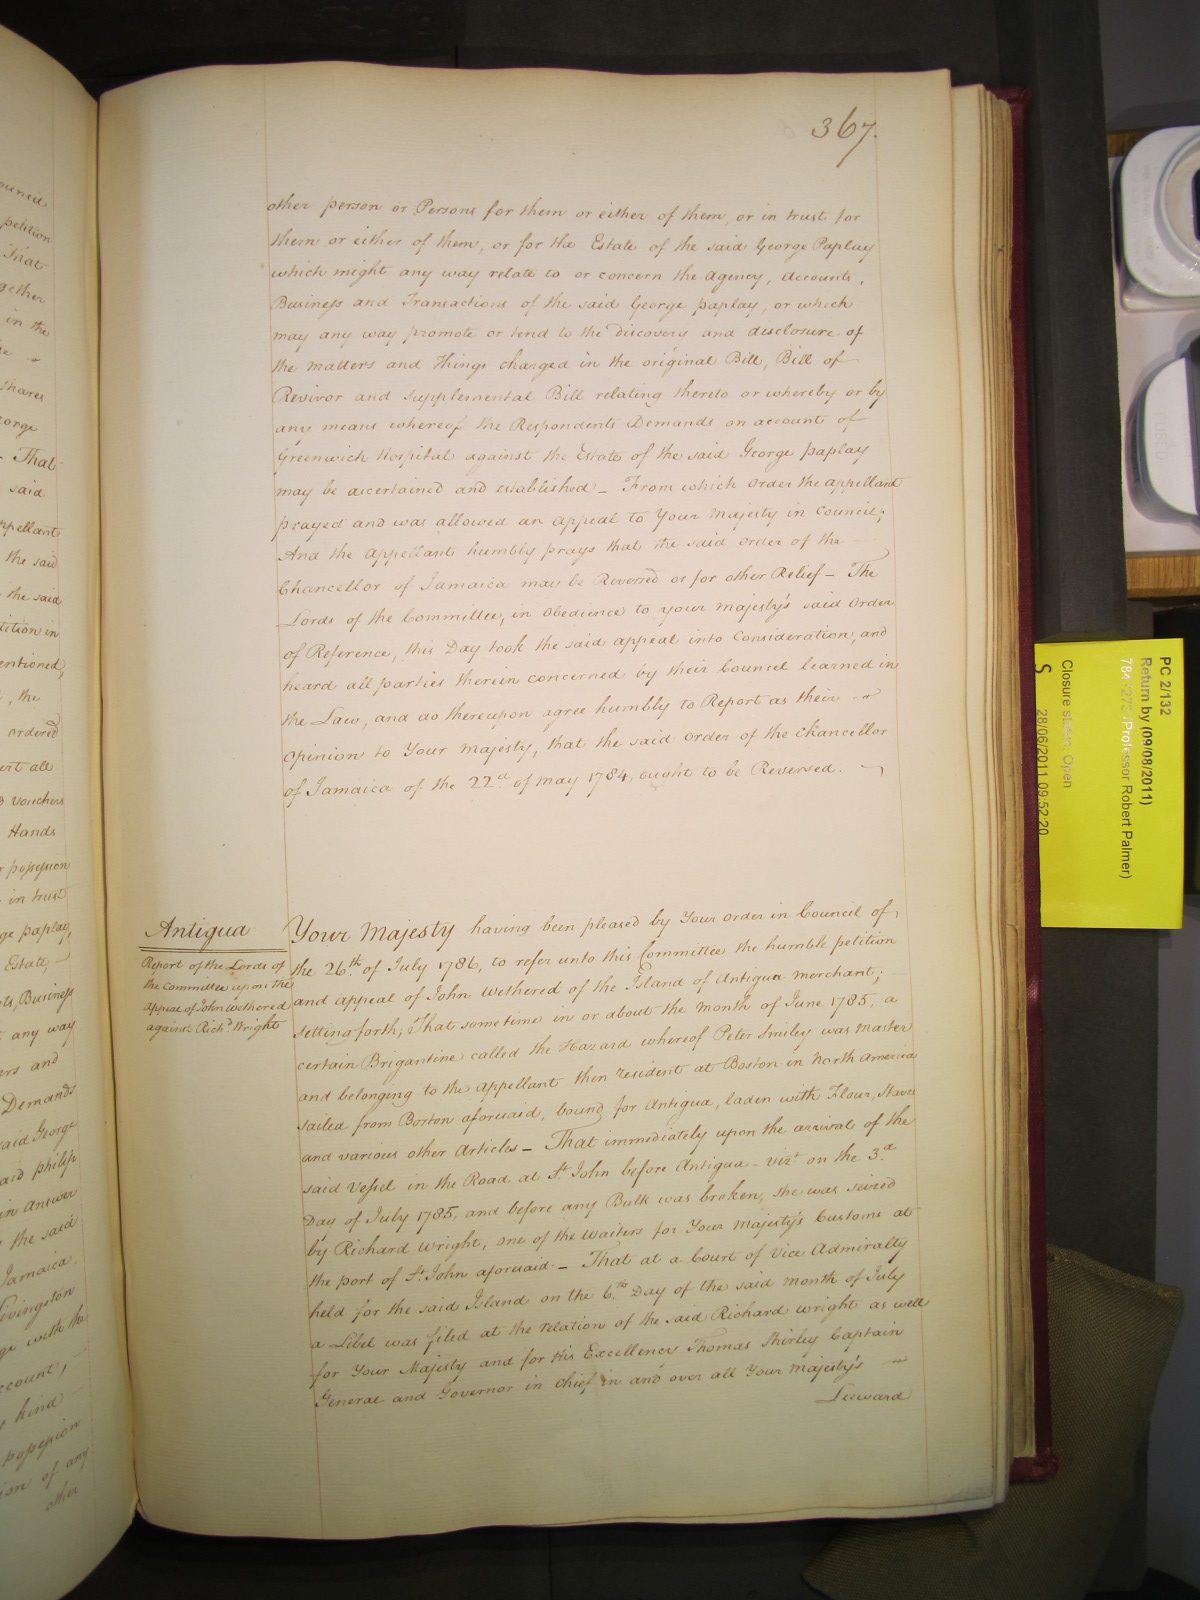 367.
other person or Persons for them or either of them, or in trust for
them or either of them, or for the Estate of the said George Paplay
which might any way relate to or concern the Agency, Accounts,
Business and Transactions of the said George Paplay, or which
may any way promote or tend to the Discovery and disclosure of
the matters and things charged in the original Bill, Bill of
Revivor and Supplemental Bill relating thereto or whereby or by
any means whereof the Respondents Demands on account of
Greenwich Hospital against the Estate of the said George Paplay
may be ascertained and established – From which Order the appellant
prayed and was allowed an appeal to Your Majesty in Council;
And the Appellant humbly prays that the said Order of the
Chancellor of Jamaica may be Reversed or for other Relief – The
Lords of the Committee, in Obedience to your Majesty's said Order
of Reference, this Day took the said appeal into Consideration, and
heard all parties therein concerned by their Counsel learned in
the Law, and do thereupon agree humbly to Report as their
Opinion to Your Majesty, that the said Order of the Chancellor
of Jamaica of the 22d of May 1784, ought to be Reversed.
Antigua
Report of the Lords of
the Committee upon the
Appeal of John Wethered
against Richd. Wright
Your Majesty having been pleased by Your Order in Council of
the 26th of July 1786, to refer unto this Committee the humble petition
and appeal of John Wethered of the Island of Antigua Merchant;
setting forth; That sometime in or about the month of June 1785, a
certain Brigantine called the Hazard whereof Peter Smiley was Master
and belonging to the Appellant then resident at Boston in North America
sailed from Boston aforesaid, bound for Antigua, laden with Flour, Staves
and various other Articles – That immediately upon the arrival of the
said Vessel in the Road at St. John before Antigua – vizt. on the 3d.
Day of July 1785, and before any Bulk was broken, she was seized
by Richard Wright, one of the Waiters for Your Majesty's Customs at
the port of St. John aforesaid – That at a Court of Vice Admiralty
held for the said Island on the 6th Day of the said month of July
a Libel was filed at the relation of the said Richard Wright as well
for Your Majesty and for His Excellency Thomas Shirley Captain
General and Governor in chief in and over all Your Majesty's
Leeward
PC 2/132
Return by (09/08/2011)
(Professor Robert Palmer)
Closure status: Open
S
28/06/2011 09:52:20
ouncil
petition
That
gether
in the
shares
orge
That
said
appellant
the said
the said
tition in
entioned,
, the
ordered
ert all
vouchers
Hands
possession
in trust
ge paplay,
Estate,
ts, Business
any way
rs and
Demands
said George
aid philip
in answer
the said
Jamaica.
Livingston
ge with the
ccount,
kind
possession
ion of any
other